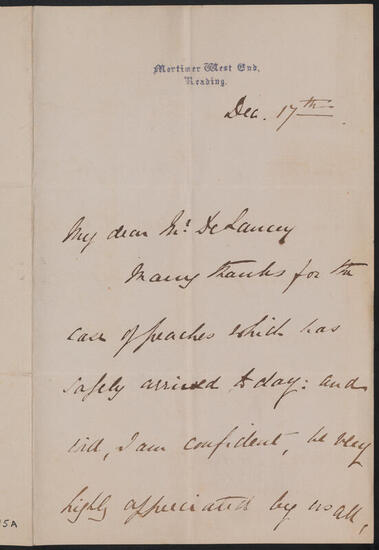 Mortimer West End,
Reading.
Dec. 17th.
My dear Mr. DeLancey
Many thanks for the
case of peaches which has
safely arrived to day: and
will, I am confident, be very
highly appreciated by us all,
5A